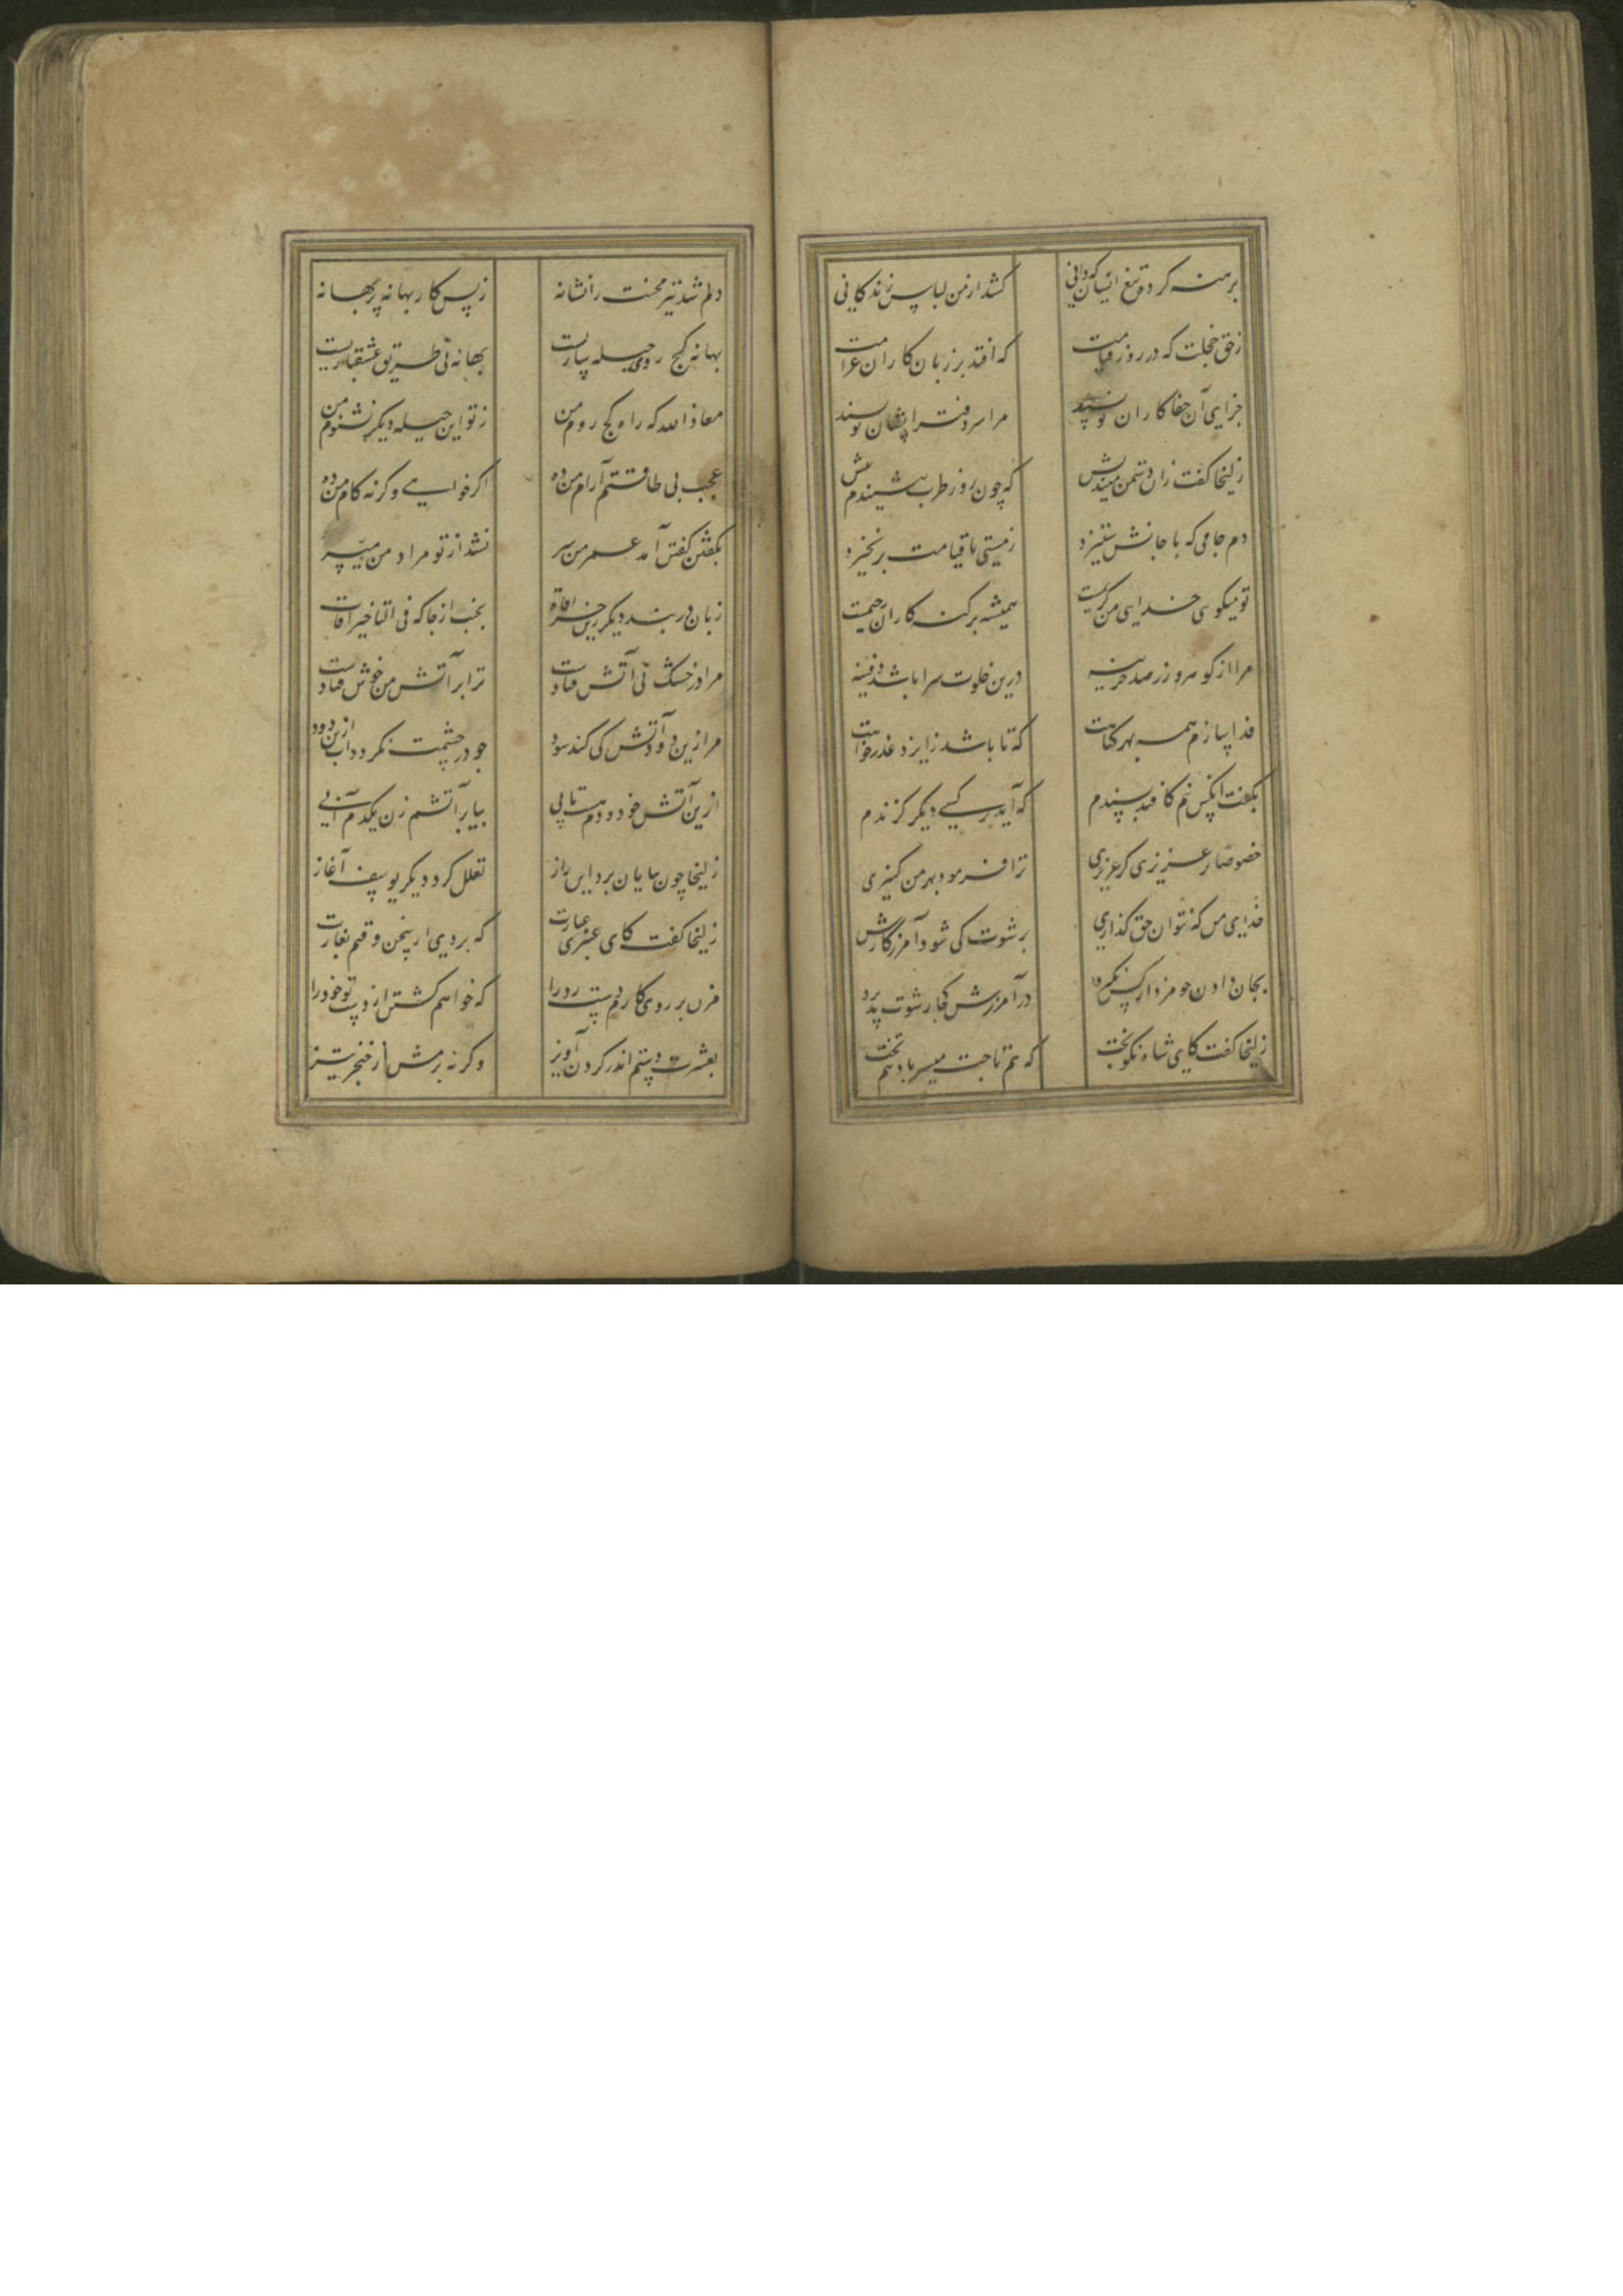 برهنه کرده تیغ انسان که دانی
کشد از من لباس زندکانی
زحق خجلت که در روز قیامت
که افتد بر زیان کاران غرامت
جزای آن جفا کاران نویسند
مرا سر دفتر ایشان نویسند
زلیخا کفت زان دشمن میندیش
که چون روز طرب بنشیندم پیش
دهم جامی که با جانش ستیزد
زمستی تا قیامت برنخیزد
تو میکوی خدای من کریمست
همیشه بر کنه کاران رحیمست
مرا از کوهر و زر صد خزینه
درین خلوت سرا باشد دفینه
فدا سازم همه بهر کناهت
که تا باشد ز ایزد عذر خواهت
بکفت انکس نیم کافتد پسندم
که آید بر کسی دیکر کزندم
خصوصا بر عزیزی کز عزیزی
ترا فرمود بهر من کنیزی
خدای من که نتوان حق کذاریش
برشوت کی شود آمرزکاریش
بجان دادن چو مزد از کس نکیرد
در آمرزش کجا رشوت پذیرد
زلیخا کفت کای شاه نکوبخت
که هم تاجت میسر باد هم تخت
دلم شد تیر محنت را نشانه
زبس کار بهانه بر بهانه
بهانه کج روی و حیله سازیست
بهانه نی طریق عشقبازیست
معاذ الله که راه کج روم من
ز تو این حیله دیکر نشنوم من
عجب بی طاقتم آرام من ده
اکر خواهی وکرنه کام من ده
بکفتن کفتن آمد عمر من سر
نشد از تو مراد من میسر
زبان دربند دیکر زین خرافات
بجنب از جا که فی التاخیر آفات
مرا در خشک نی آتش فتادست
ترا بر آتش من خوش فتادست
مرا زین دود و آتش کی کند سود
چو در چشمت نکردد آب ازین دود
ازین آتش چو دودم هست تابی
بیا بر آتشم زن یکدم آبی
زلیخا چون بپایان برد این راز
تعلل کرد دیکر یوسف آغاز
زلیخا کفت کای عبری عبارت
که بردی از سخن وقتم بغارت
مزن بر روی کارم دست رد را
که خواهم کشتن از دست تو خود را
بعشرت دستم اندر کردن آویز
وکرنه برمش از خنجر تیز